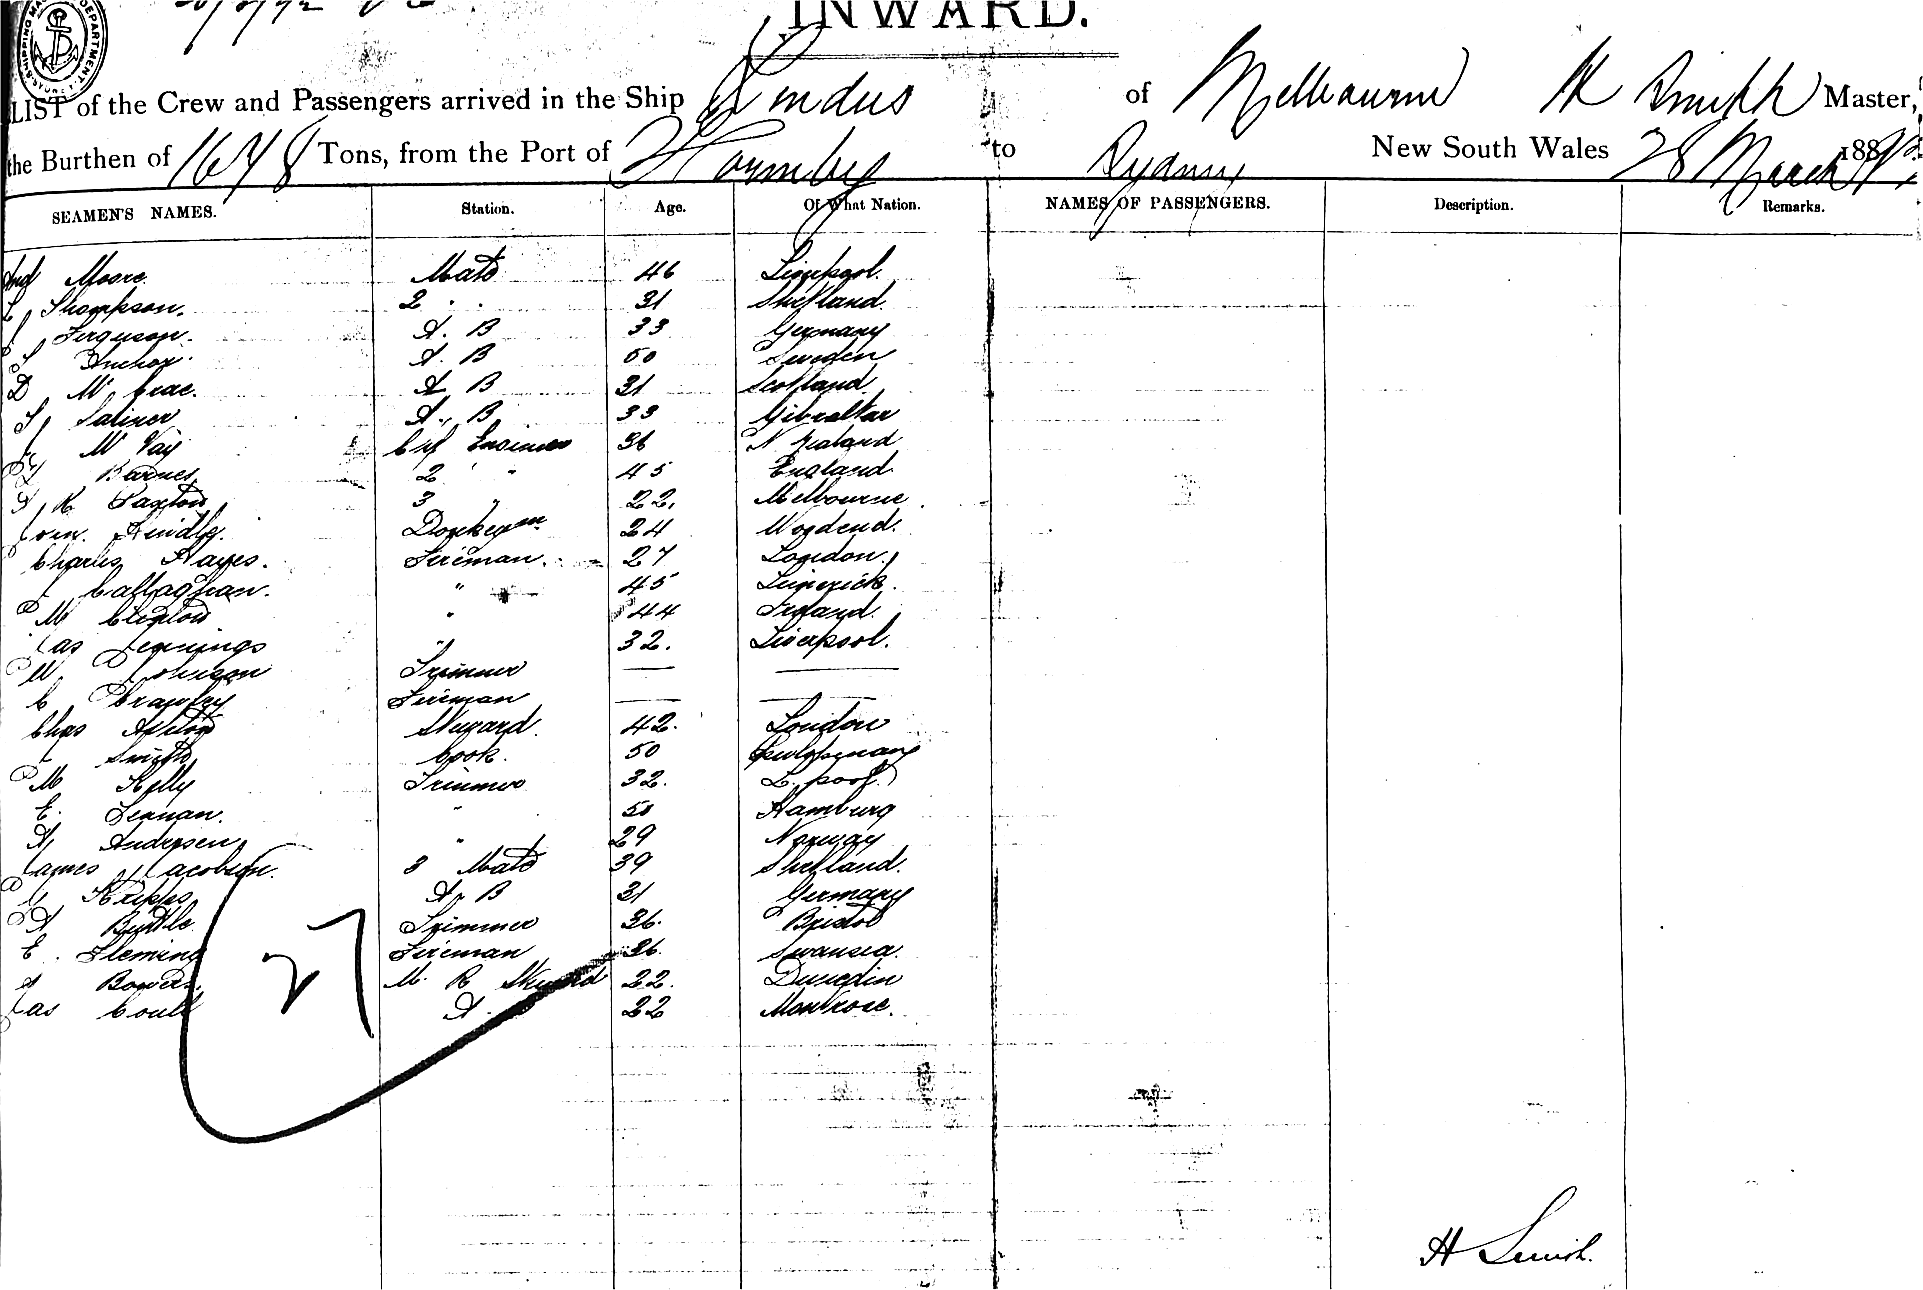 INWARD.
LIST of the Crew and Passengers arrived in the Ship Pendus of Melbourne H Smith Master,
the Burthen of 1648 Tons, from the Port of to Sydney New South Wales 28 March 188
SEAMEN'S NAMES. Station. Age. Of What Nation. NAMES OF PASSENGERS. Description. Remarks.
And Moore. Mate 46 Liverpool.
Thompson. 2 " " 31 Shetland.
Ferguson. A. B 33 Germany
Anchor A. B 50 Sweden
D McCrae. A B 31 Scotland
Saliner A. B 33 Gibraltar
McVay Chf Engineer 36 N Zealand
Barnes 2 " " 45 England
R. Paxton 3 " 22. Melbourne
Hindle. Donkeym 24 Woodend.
Charles Hayes. Fireman 27 London.
J Callaghan. " 45 Limerick.
M " 44 Ireland.
Jas Jennings " 32. Liverpool.
W. Johnson Trimmer — —
C Crawley Fireman — —
Chas Steward. 42. London
J Smith Cook. 50
M Kelly Trimmer 32. L. pool.
E. Lennan. " 50 Hamburg
A Andersen " 29 Norway
James Jacobson. 3 Mate 39 Shetland.
Krepps A. B 31 Germany
Buckle. Trimmer 36. Bristol
E. Fleming Fireman 36. Swansea.
Bower. M. R Steward 22. Dunedin
Jas Coull A. B 22 Montrose.
27
H Smith.